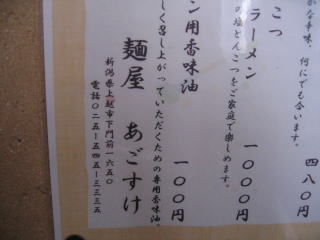 かな辛味、何にでも合います。
四八〇円
こつ
ラーメン
の塩とんこつをご家庭で楽しめます。
一〇〇〇円
ン用香味油
しく召し上がっていただくための専用香味油。
一〇〇円
麺屋 あごすけ
新潟県上越市下門前一六五〇
電話〇二五-五四五-三三三五